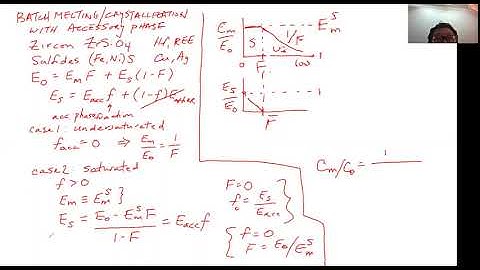 BATCH MELTING/CRYSTALLIZATION
WITH ACCESSORY PHASE
Zircon ZrSiO4 Hf, REE
Sulfides (Fe,Ni)S Cu, Ag
E0 = Em F + Es (1-F)
Es = Eacc f + (1-f) Eother
acc phase fraction
case 1: undersaturated
facc = 0 ⇒ Em/E0 = 1/F
case 2: saturated
f > 0
Em ≡ Em^S }
Es = (E0 - Em^S F)/(1-F) = Eacc f
Em/E0
S
1/F
Em^S
0 F 1
Es/E0
1
F
F = 0
f0 = Es/Eacc }
{ f = 0
F = E0/Em^S
Cm/C0 = 1